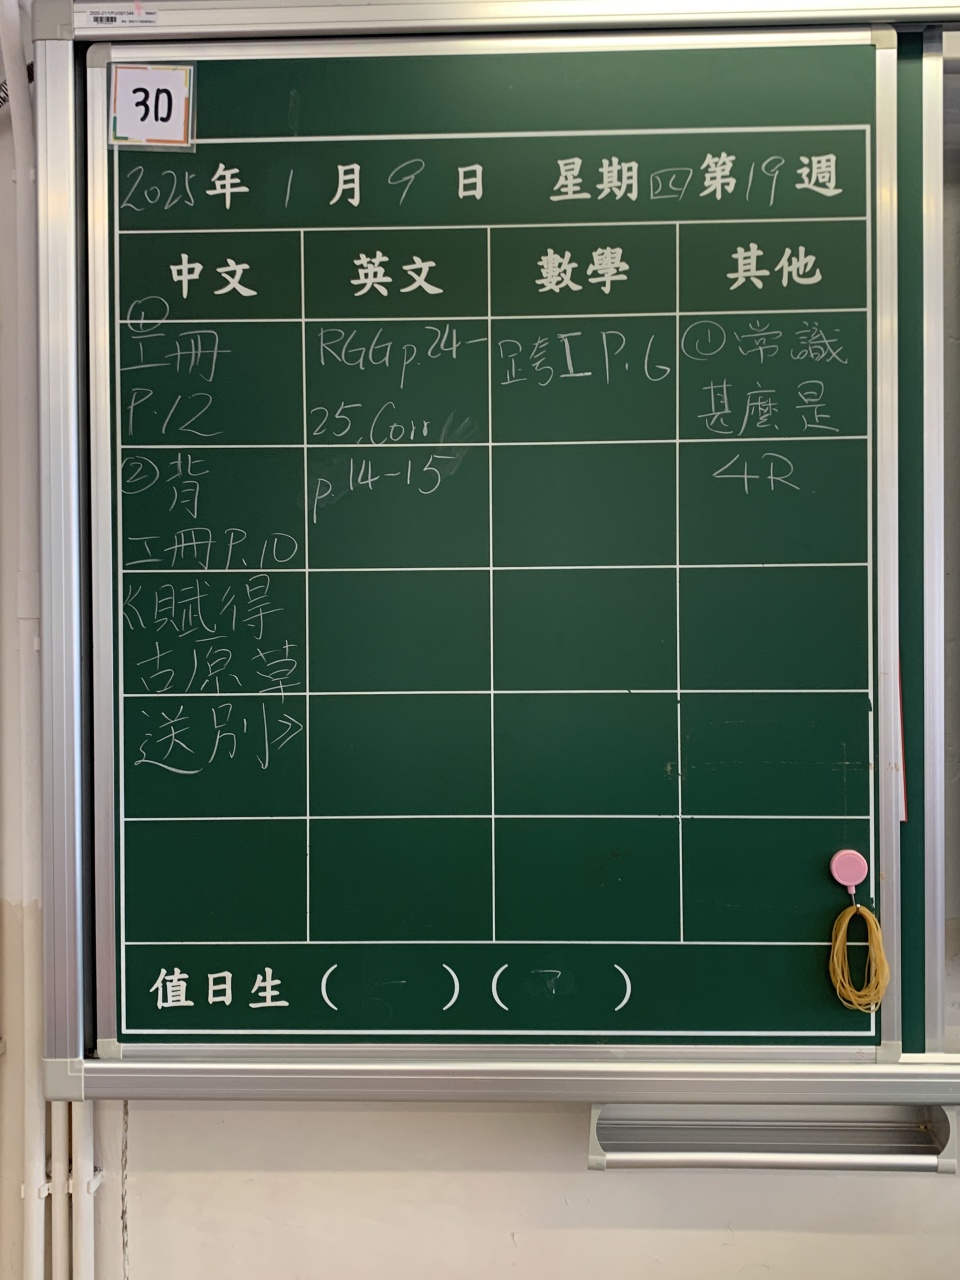 3D
2025年1月9日 星期四第19週
中文 英文 數學 其他
①
工冊
P.12
②背
工冊P.10
《賦得
古原草
送別》
RGG p.24-
25, Corr
p.14-15
跨工 P.6
①常識
甚麼是
4R
值日生( )( )